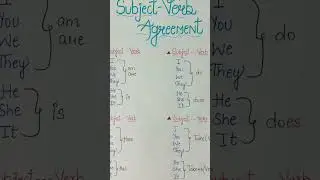 Subject-Verb
Agreement
I
You
We
They
am
are
He
She
It
is
Subject - Verb
I
You
We
They
am
are
He
She
It
is
Subject - Verb
I
You
We
They
do
He
She
It
does
I
You
We
They
do
He
She
It
does
Subject - Verb
I
You
We
They
He
She
It
Has
Subject - Verb
I
She
We
They
Take
He
She
It